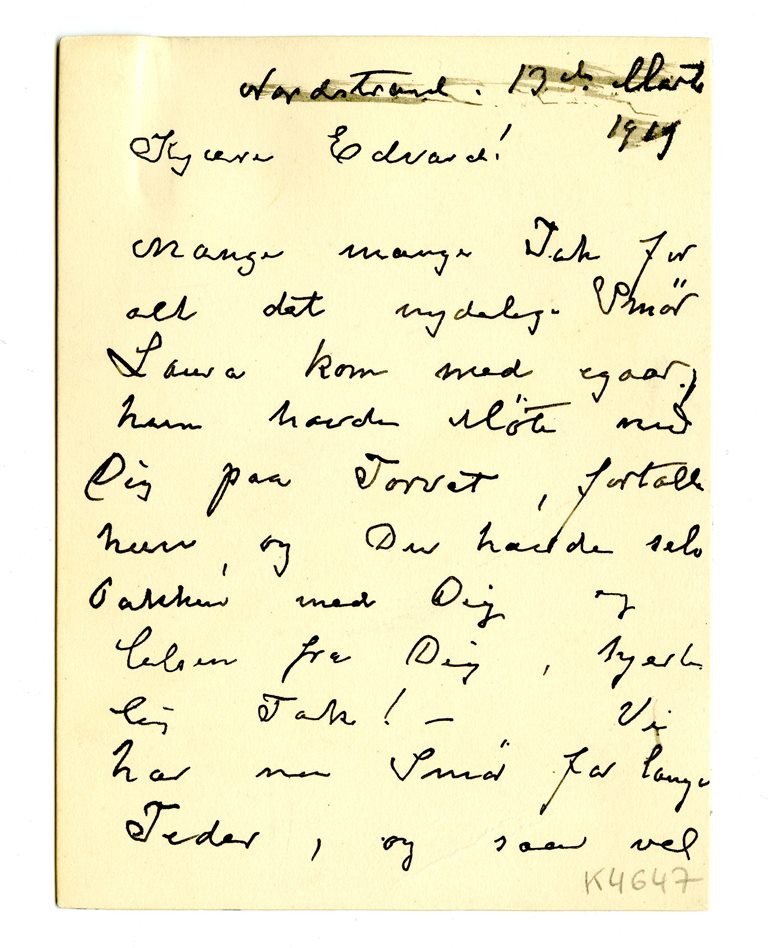 Nordstrand. 13de Marts
1919
Kjære Edvard!
Mange mange Tak for
alt det nydelige Smör
Laura kom med igaar,
hun havde Möte med
Dig paa Torvet, fortalte
hun, og Du havde selv
Pakken med Dig og
hilsen fra Dig, hjerte
lig Tak! — Vi
har nu Smör for lange
Tider, og saa vel
K4647